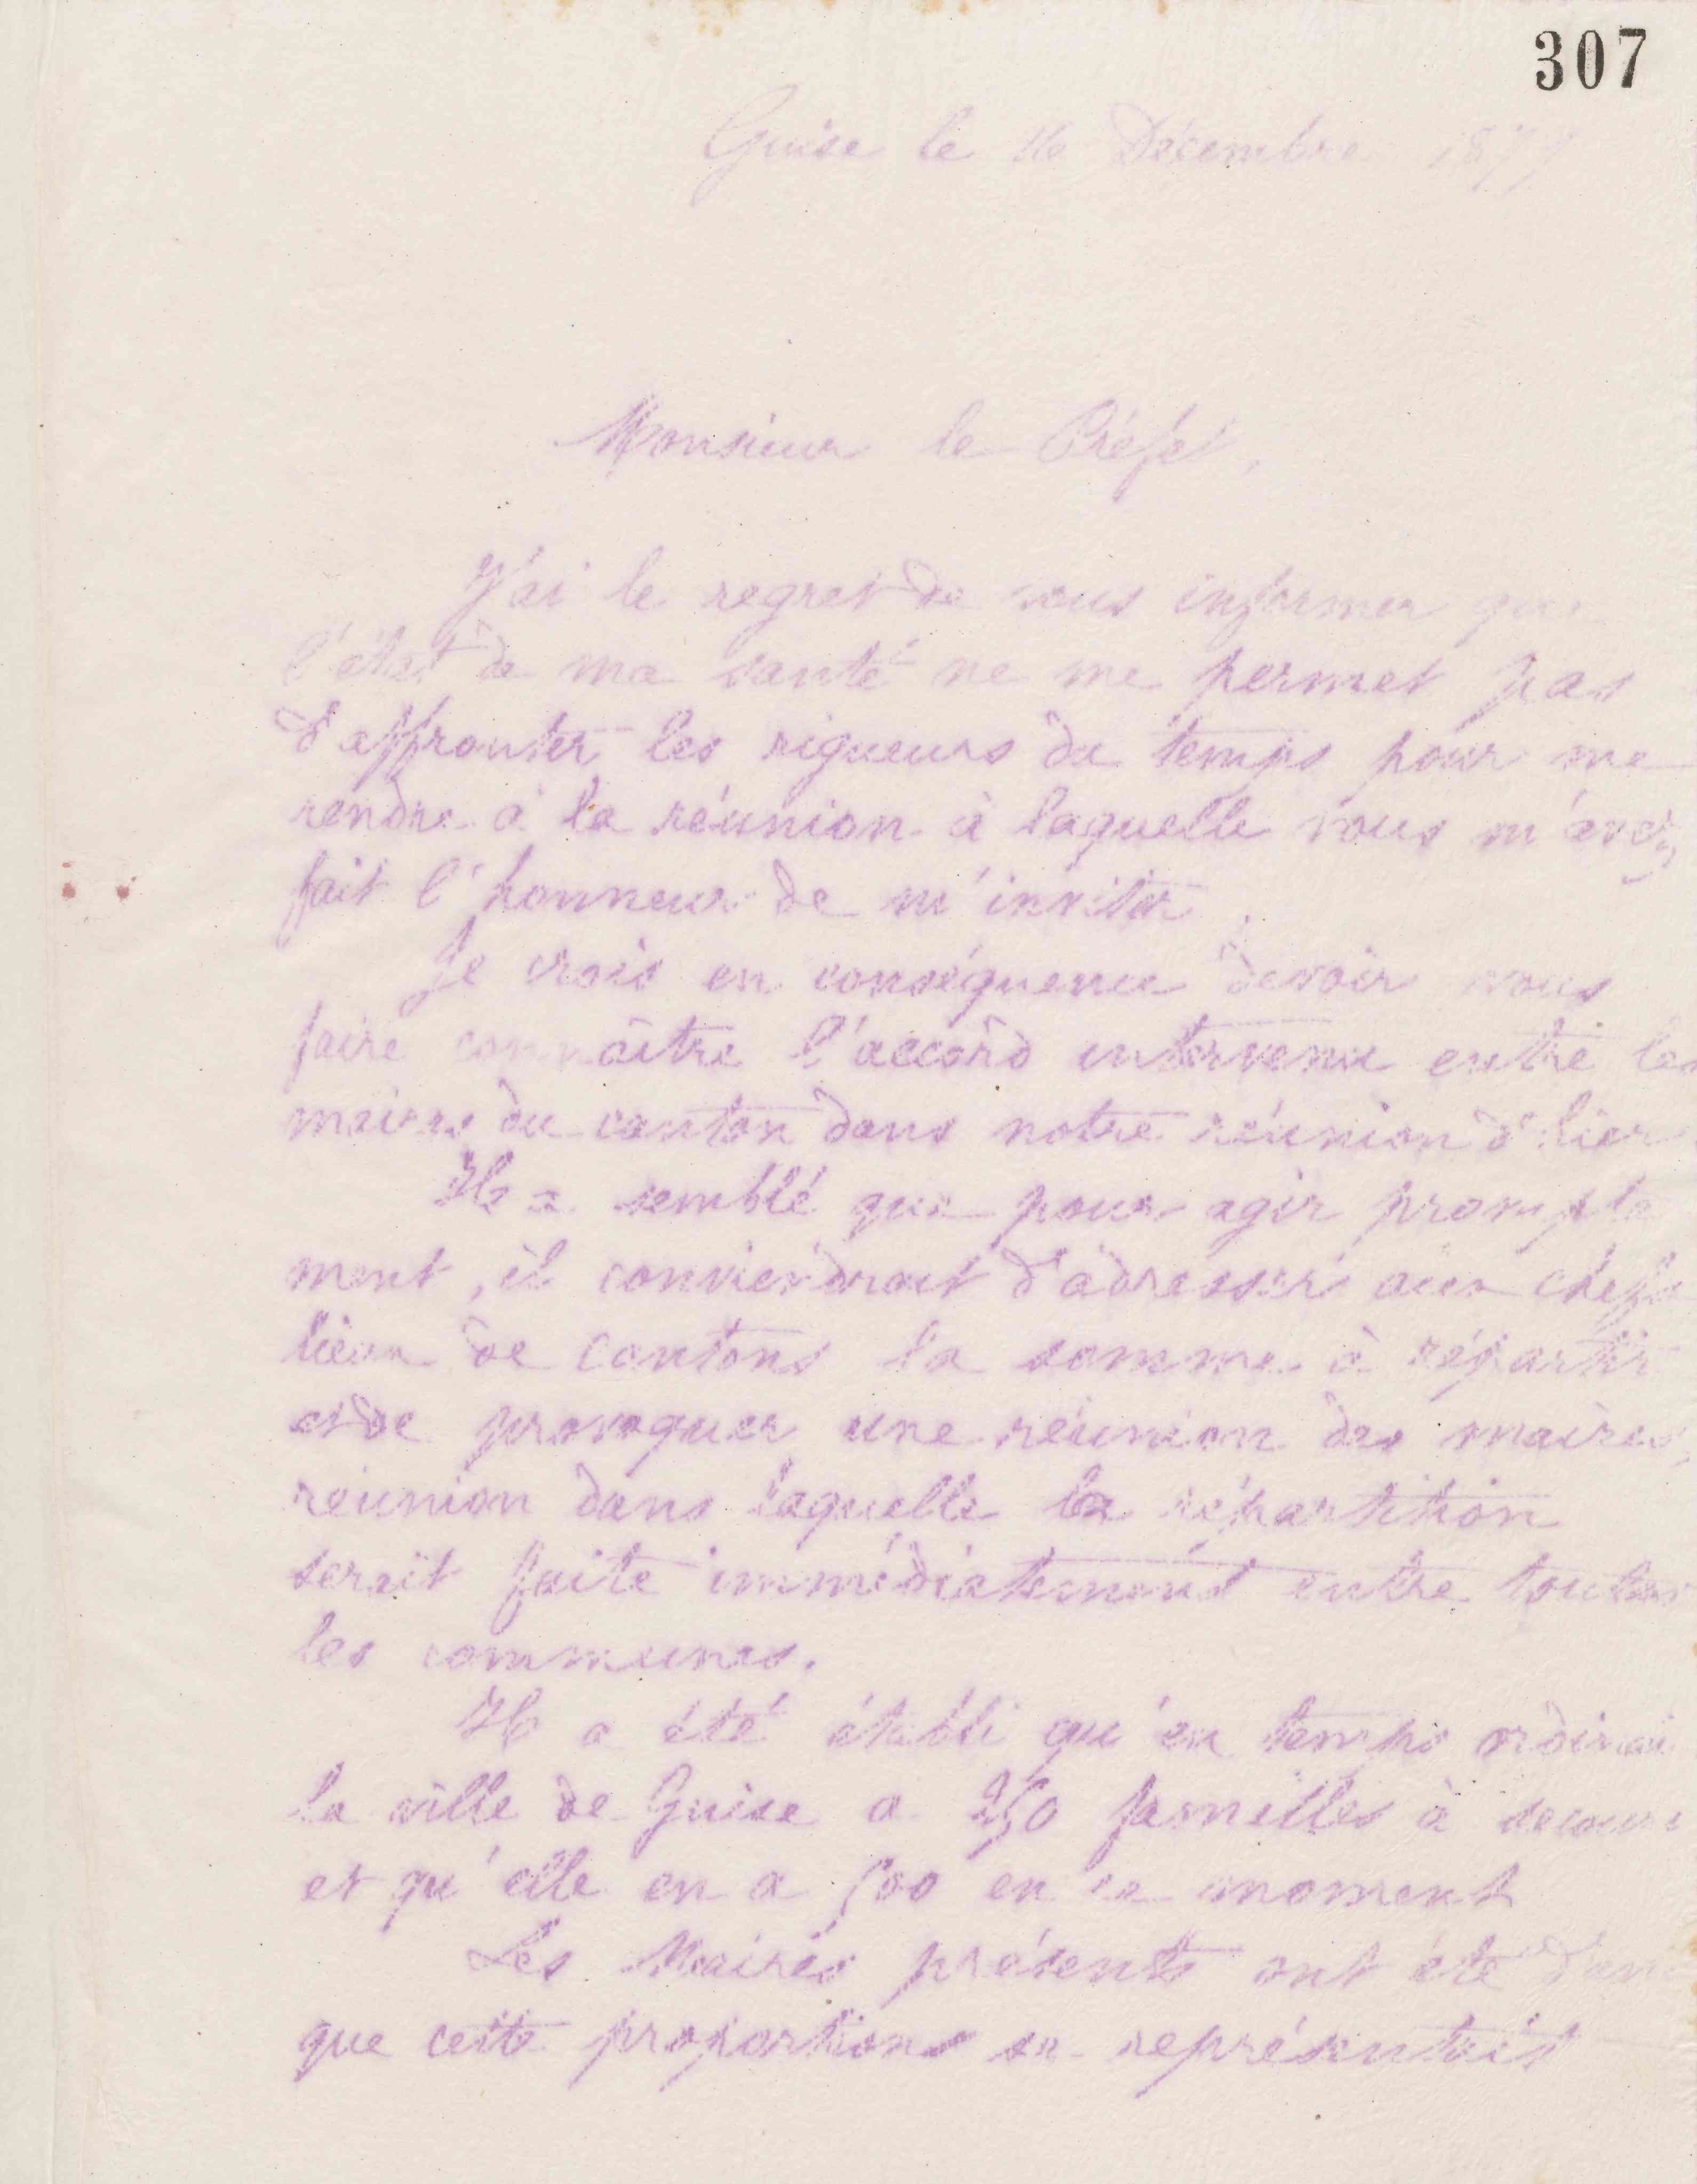 307
Guise le 16 Décembre 1879
Monsieur le Préfet,
J'ai le regret de vous informer que
l'état de ma santé ne me permet pas
d'affronter les rigueurs du temps pour me
rendre à la réunion à laquelle vous m'avez
fait l'honneur de m'inviter.
Je crois en conséquence devoir vous
faire connaître l'accord intervenu entre les
maires du canton dans notre réunion d'hier
Il a semblé que pour agir prompte
ment, il conviendrait d'adresser aux chefs
lieux de cantons la somme à répartir
et de provoquer une réunion des maires,
réunion dans laquelle la répartition
serait faite immédiatement entre toutes
les communes.
Il a été établi qu'en temps ordinai
la ville de Guise a 250 familles à secouri
et qu'elle en a 500 en ce moment
Les Maires présents ont été d'avis
que cette proportions se représentait